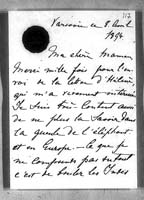 Varsovie ce 8 Avril
1894.
Ma chère Maman
Merci mille fois pour l'en-
voi de la lettre d'Hélène
qui m'a vivement intéressé
Je suis très content aussi
de ne plus la savoir dans
la gueule de l'éléphant
et en Europe - Ce que je
ne comprends pas du tout
c'est de les Indes